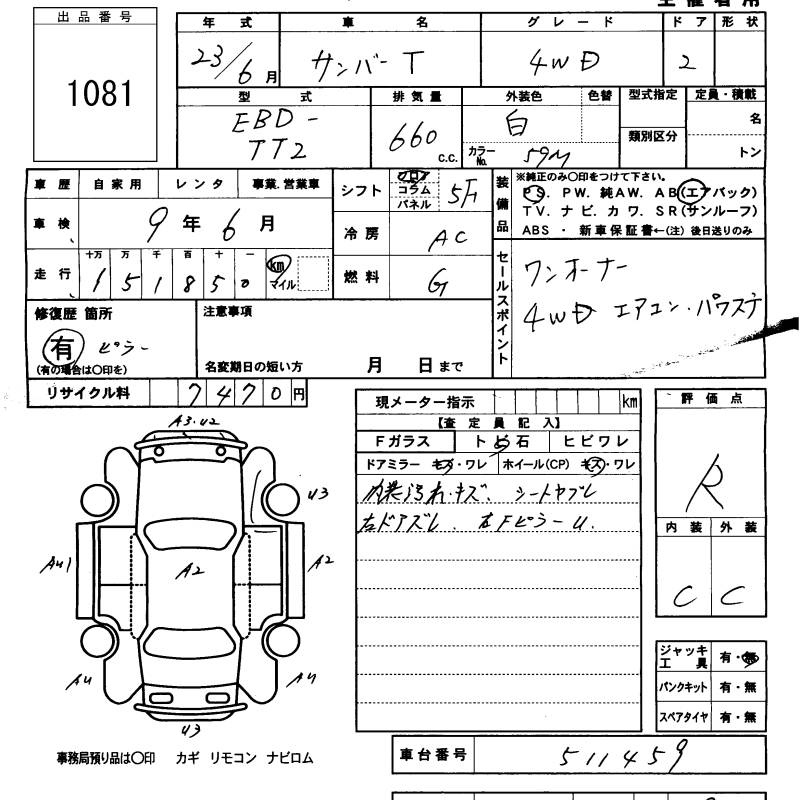 出品番号
1081
年式 車名 グレード ドア 形状
23/6月 サンバー T 4WD 2
型式 排気量 外装色 色替 型式指定 定員・積載
EBD-
TT2
660 c.c.
白
カラーNo. 59M
類別区分
名
トン
車歴 自家用 レンタ 事業.営業車
シフト フロア コラム パネル 5F
車検 9年6月
冷房 AC
走行 十万 万 千 百 十 一
151850 km マイル
燃料 G
装備品
※純正のみ○印をつけて下さい。
PS. PW. 純AW. AB(エアバック)
TV. ナビ. カワ. SR(サンルーフ)
ABS ・ 新車保証書←(注) 後日送りのみ
セールスポイント
ワンオーナー
4WD エアコン・パワステ
修復歴 箇所
有 ピラー
(有の場合は○印を)
注意事項
名変期日の短い方 月 日まで
リサイクル料 7470円
現メーター指示 km
【査定員記入】
Fガラス トビ石 ヒビワレ
ドアミラー キズ・ワレ ホイール(CP) キズ・ワレ
内装汚れ・キズ. シートヤブレ
右ドアズレ. 右Fピラー U.
評価点
R
内装 外装
C C
A3・U2
U3
AU1
A2
A2
AU
AU
U3
ジャッキ工具 有・無
パンクキット 有・無
スペアタイヤ 有・無
事務局預り品は○印 カギ リモコン ナビロム
車台番号 511459